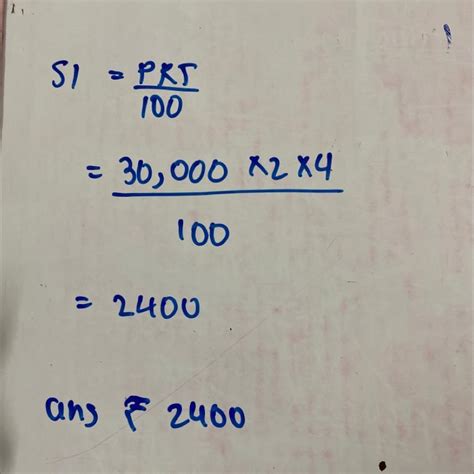 SI = PRT
100
= 30,000 × 2 × 4
100
= 2400
ans ₹ 2400